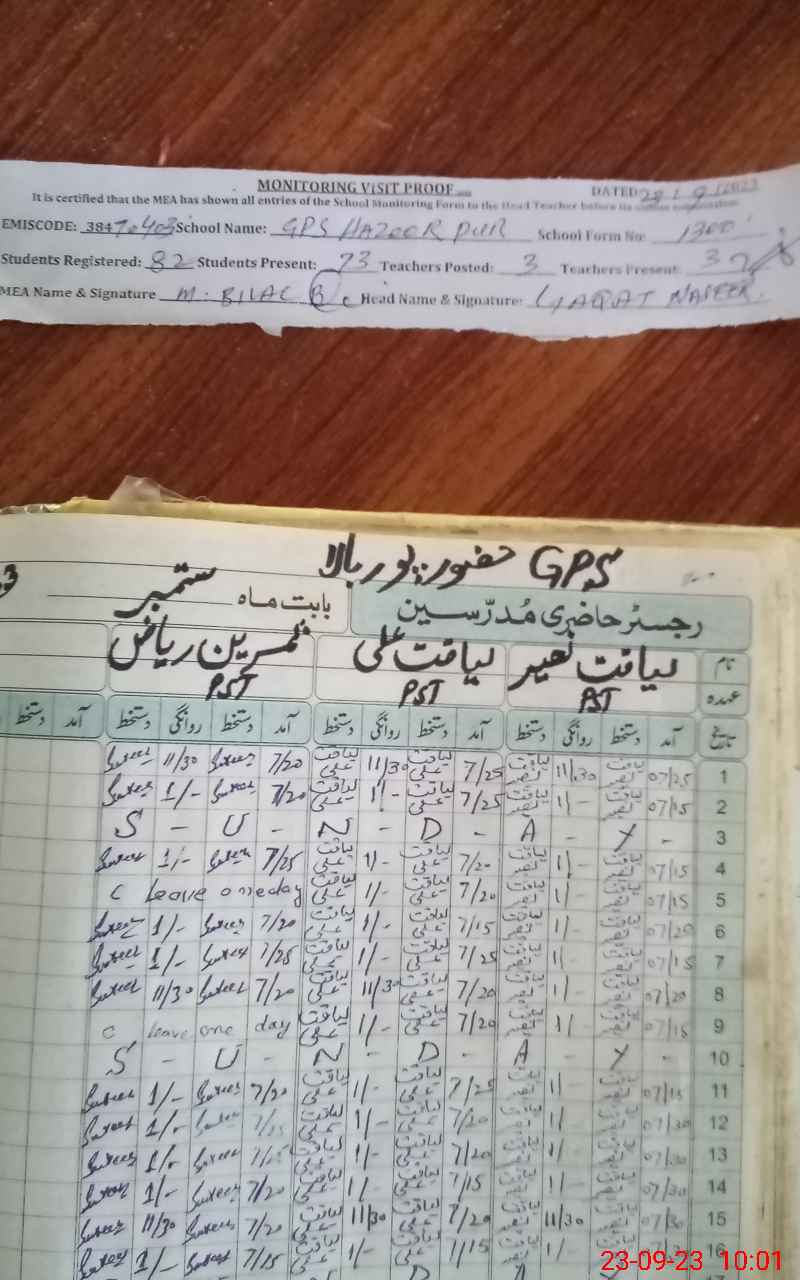 MONITORING VISIT PROOF DATED
It is certified that the MEA has shown all entries of the School Monitoring Form to the Head Teacher before its
EMISCODE: 38470403 School Name: GPS HAZOOR PUR School Form No: 1300
Students Registered: 82 Students Present: 73 Teachers Posted: 3 Teachers Present: 3
MEA Name & Signature M. BILAL Head Name & Signature: LIAQAT NASEER.
GPS حضور پور بالا
رجسٹر حاضری مُدرّسین بابت ماہ ستمبر
نام لیاقت نصیر لیاقت علی ثمرین ریاض
عہدہ PST PST PST
تاریخ آمد دستخط روانگی دستخط آمد دستخط روانگی دستخط آمد دستخط روانگی دستخط آمد دستخط
1 07/25 لیاقت نصیر 11/30 لیاقت نصیر 7/25 لیاقت علی 11/30 لیاقت علی 7/20 11/30
2 07/15 لیاقت نصیر 1/- لیاقت نصیر 7/25 لیاقت علی 1/- لیاقت علی 7/20 1/-
3 S - U - N - D - A - Y -
4 07/15 لیاقت نصیر 1/- لیاقت نصیر 7/20 لیاقت علی 1/- لیاقت علی 7/25 1/-
5 07/15 لیاقت نصیر 1/- لیاقت نصیر 7/20 لیاقت علی 1/- لیاقت علی C leave one day
6 07/20 لیاقت نصیر 1/- لیاقت نصیر 7/15 لیاقت علی 1/- لیاقت علی 7/20 1/-
7 07/15 لیاقت نصیر 1/- لیاقت نصیر 7/25 لیاقت علی 1/- لیاقت علی 7/25 1/-
8 07/20 لیاقت نصیر 1/- لیاقت نصیر 7/20 لیاقت علی 11/30 لیاقت علی 7/20 11/30
9 07/15 لیاقت نصیر 1/- لیاقت نصیر 7/20 لیاقت علی 1/- لیاقت علی C leave one day
10 S - U - N - D - A - Y -
11 07/15 لیاقت نصیر 1/ لیاقت نصیر 7/25 لیاقت علی 1/- لیاقت علی 7/20 1/-
12 07/30 لیاقت نصیر 1/ لیاقت نصیر 7/20 لیاقت علی 1/- لیاقت علی 1/-
13 07/30 لیاقت نصیر 1/- لیاقت نصیر 7/20 لیاقت علی 1/- لیاقت علی 1/-
14 07/30 لیاقت نصیر 1/- لیاقت نصیر 7/15 لیاقت علی 1/- لیاقت علی 7/20 1/-
15 07/30 لیاقت نصیر 11/30 لیاقت نصیر 7/20 لیاقت علی 11/30 لیاقت علی 7/20 11/30
16 لیاقت نصیر 1/- لیاقت نصیر 7/15 لیاقت علی 1/- لیاقت علی 7/15 1/-
23-09-23 10:01